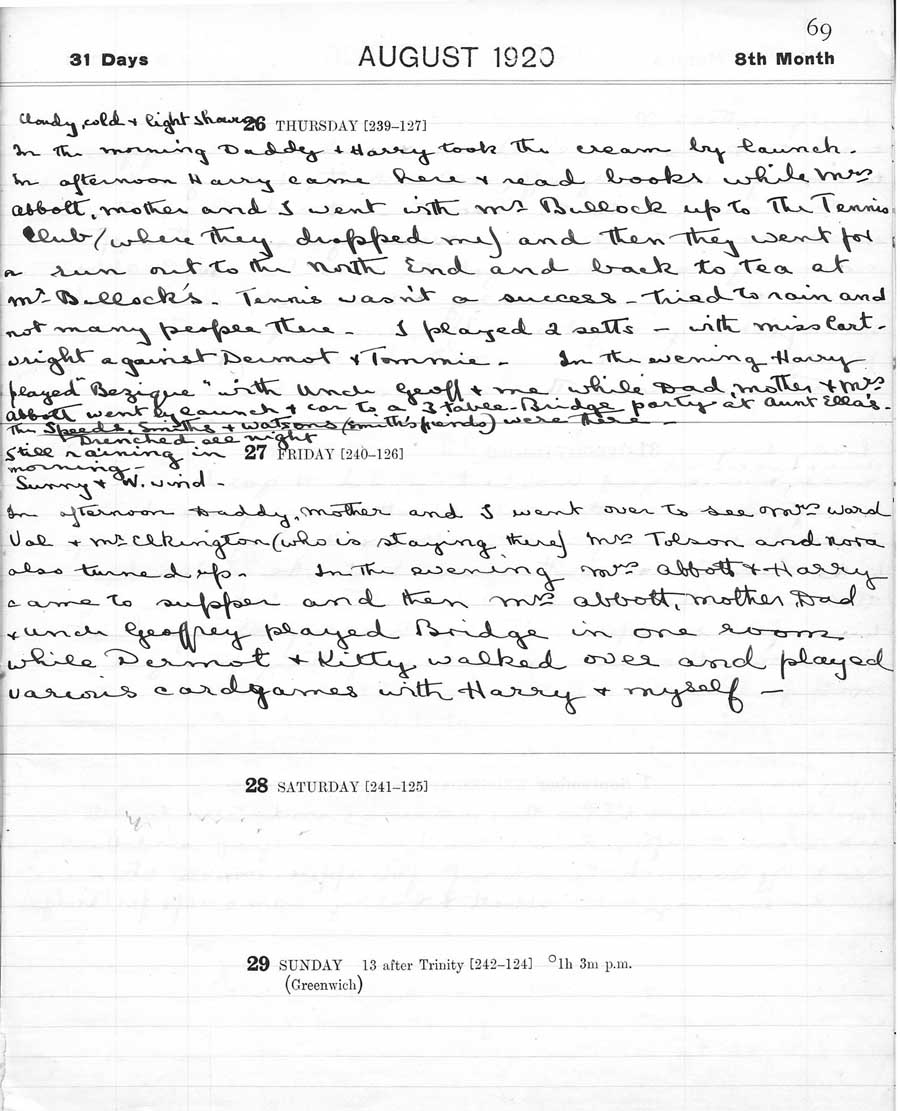 69
31 Days AUGUST 1920 8th Month
Cloudy, cold + light showers 26 THURSDAY [239–127]
In the morning Daddy + Harry took the cream by launch.
In afternoon Harry came here + read books while Mrs
Abbott, mother and I went with Mr Bullock up to The Tennis
Club (where they dropped me) and then they went for
a run out to the North End and back to Tea at
Mr Bullock's. Tennis wasn't a success – tried to rain and
not many people there – I played 2 setts – with Miss Cart-
wright against Dermot + Tommie – In the evening Harry
played "Bezique" with Uncle Geoff + me while Dad, mother + Mrs
Abbott went by launch + car to a 3 table-Bridge party at Aunt Ella's.
The Speeds, Smiths + Watsons (Smith's friends) were there –
Drenched all night
Still raining in 27 FRIDAY [240–126]
morning –
Sunny + W. wind –
In afternoon Daddy, mother and I went over to see Mrs Ward
Val + Mr Elkington (who is staying there) Mrs Tolson and Nora
also turned up. In the evening Mrs Abbott + Harry
came to supper and then Mrs Abbott, mother, Dad
+ Uncle Geoffrey played Bridge in one room
while Dermot + Kitty walked over and played
various cardgames with Harry + myself –
28 SATURDAY [241–125]
29 SUNDAY 13 after Trinity [242–124] ○1h 3m p.m.
(Greenwich)